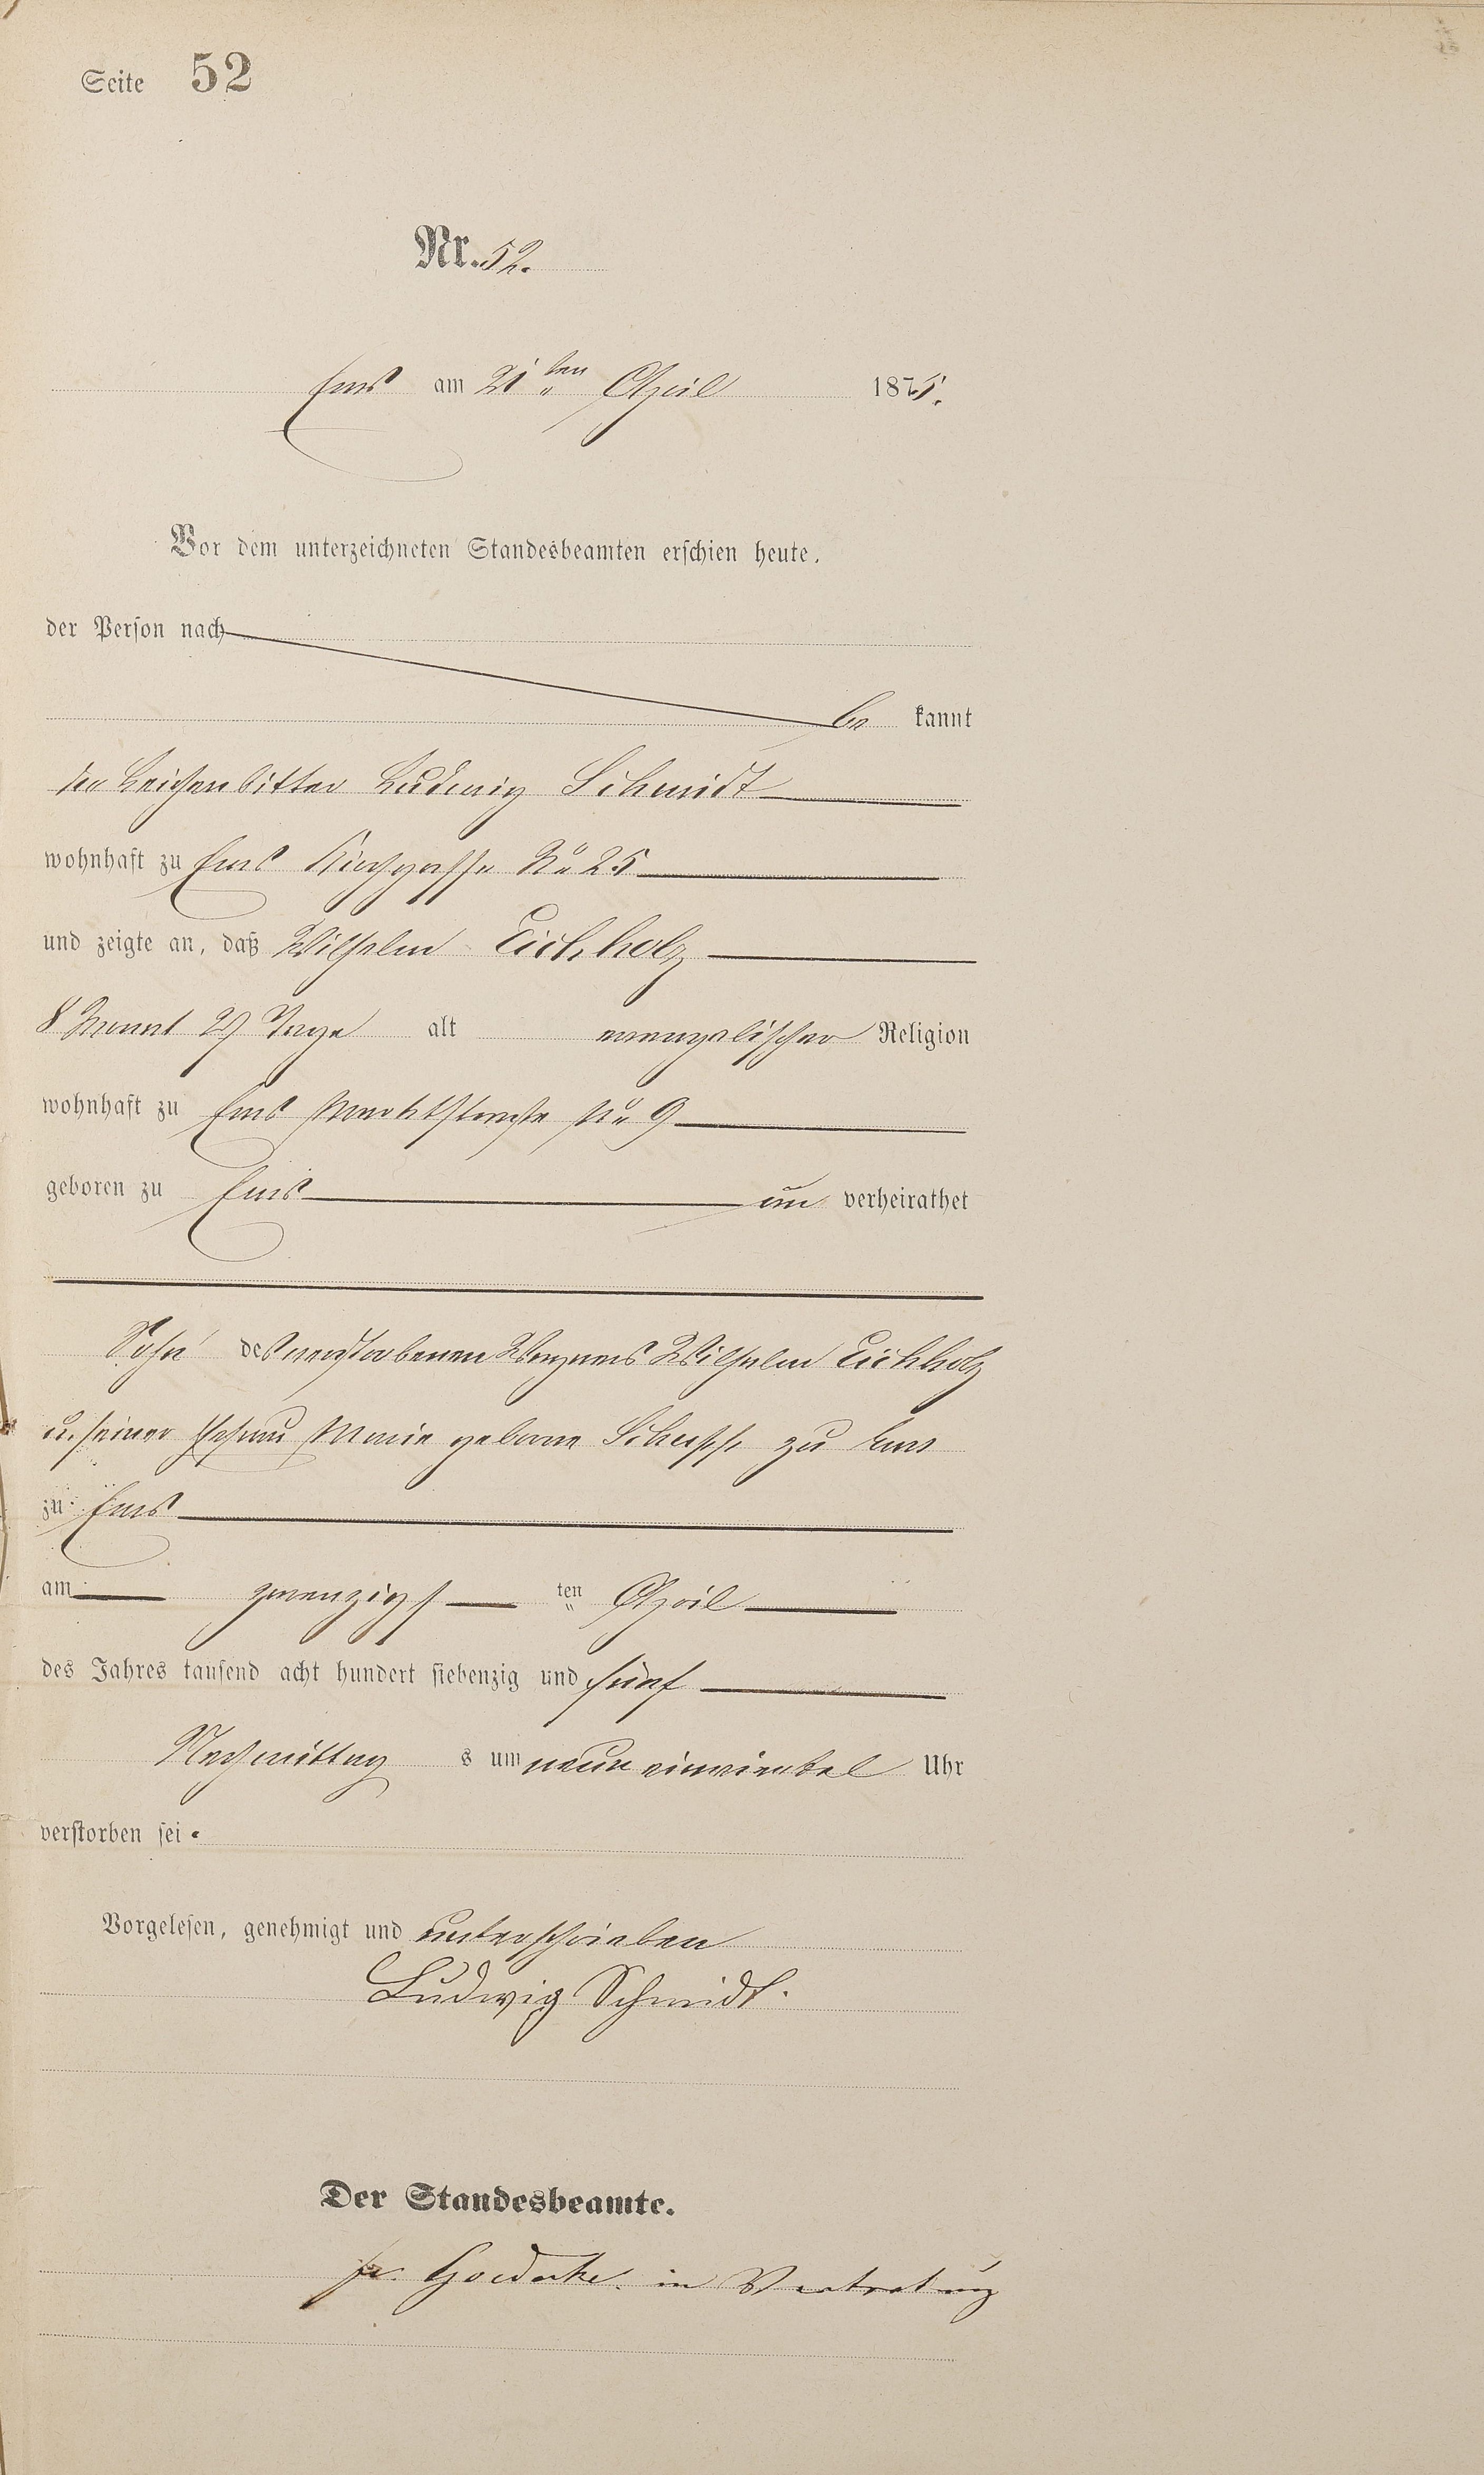 Seite 52
Nr. 52.
Ems am 21ten April 1875.
Vor dem unterzeichneten Standesbeamten erschien heute,
der Person nach
be kannt
der Leichenbitter Ludwig Schmidt
wohnhaft zu Ems Kirchgasse No 25
und zeigte an, daß Wilhelm Eichholz
8 Monat 29 Tage alt evangelischer Religion
wohnhaft zu Ems Marktstraße No 9
geboren zu Ems un verheirathet
Sohn des verstorbenen Wagners Wilhelm Eichholz
u. seiner Ehefrau Marie geborne Schupp zu Ems
zu Ems
am zwanzigsten April
des Jahres tausend acht hundert siebenzig und fünf
Nachmittags um neun einviertel Uhr
verstorben sei.
Vorgelesen, genehmigt und unterschrieben
Ludwig Schmidt.
Der Standesbeamte.
in Vertretung